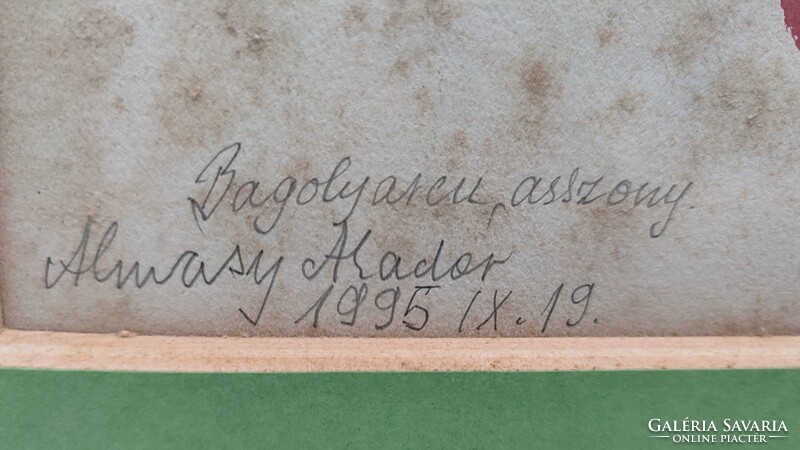 „Bagolyarcu" asszony.
Almásy Aladár
1995 IX. 19.
GALÉRIA SAVARIA
ONLINE PIACTÉR